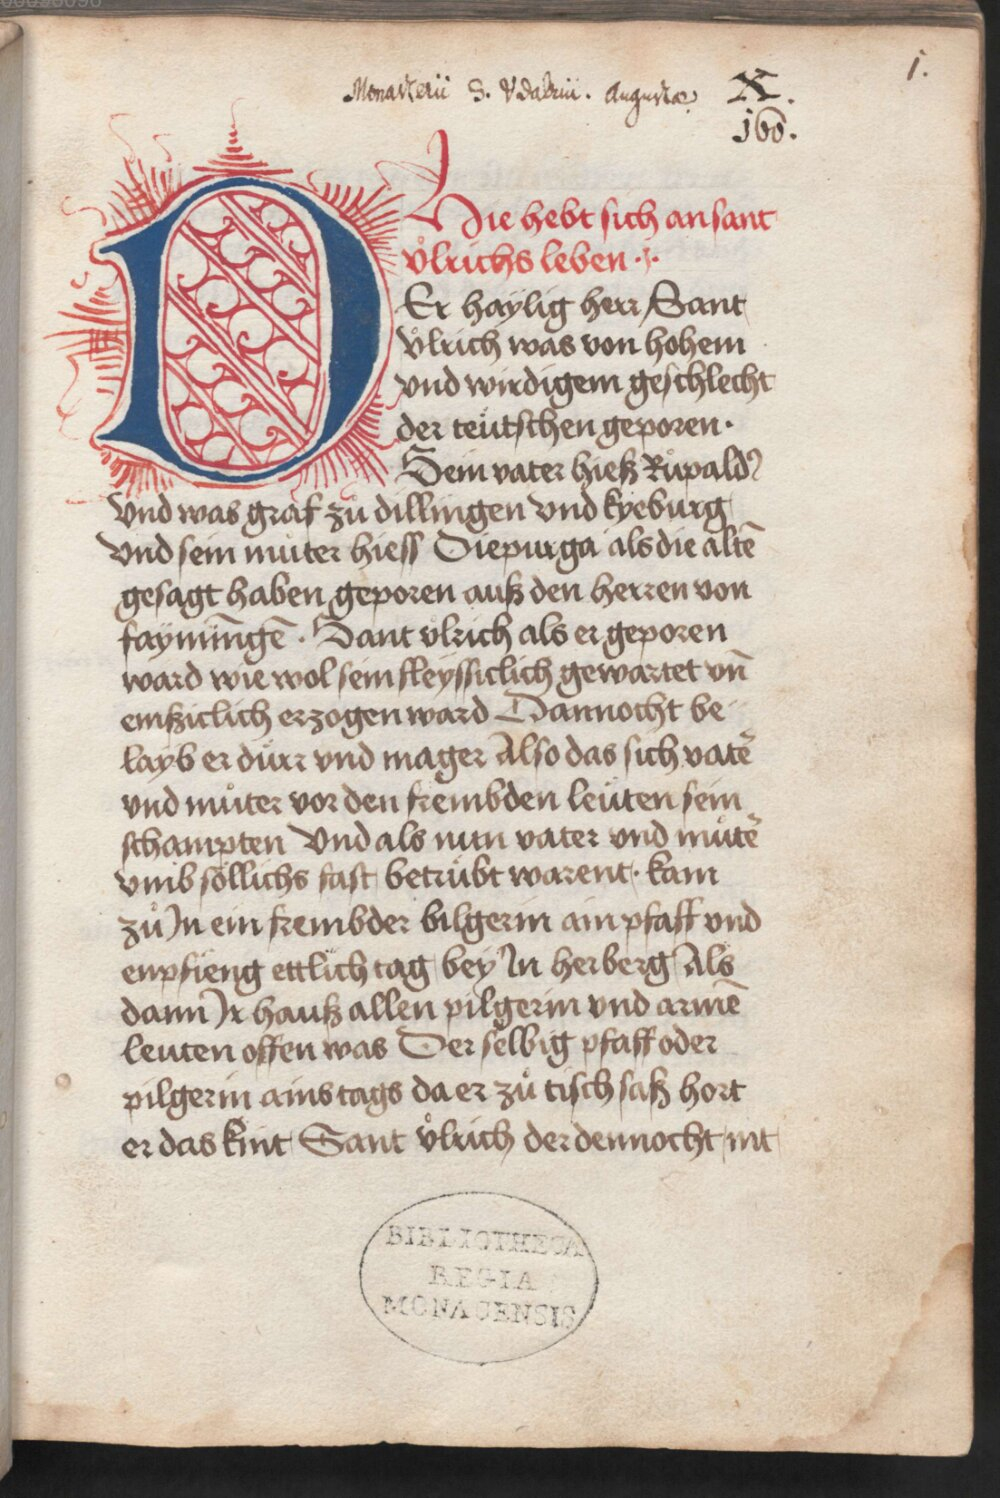 00098096
1.
Monasterii S. Vdalrici. Augustæ X.
160.
Hie hebt sich an sant
vͦlrichs leben ·
DEr haÿlig herr Sant
vͦlrich was von hohem
vnd wirdigem geschlecht
der teütschen geporen ·
Sein vater hieß Růpald
Vnd was graf zů dillingen vnd kyeburg
Vnd sein můter hiess Diepurga als die altē
gesagt haben geporen auß den herren von
faÿmingē · Sant vlrich als er geporen
ward wie wol sein fleyssiclich gewartet vn̄
emßiclich erzogen ward Dannocht be
layb er dürr vnd mager Also das sich vatē
vnd můter vor den frembden leüten sein
schampten Vnd als nun vater vnd můtē
vmb söllichs fast betrübt warent · kam
zů In ein frembder bilgerin ain pfaff vnd
enpfieng ettlich tag bey In herberg Als
dann Ir hauß allen pilgerin vnd armē
leuten offen was Der selbig pfaff oder
pilgerin ains tags da er zů tisch saß hort
er das kint Sant vͦlrich der dennocht nit
BIBLIOTHECA
REGIA
MONACENSIS